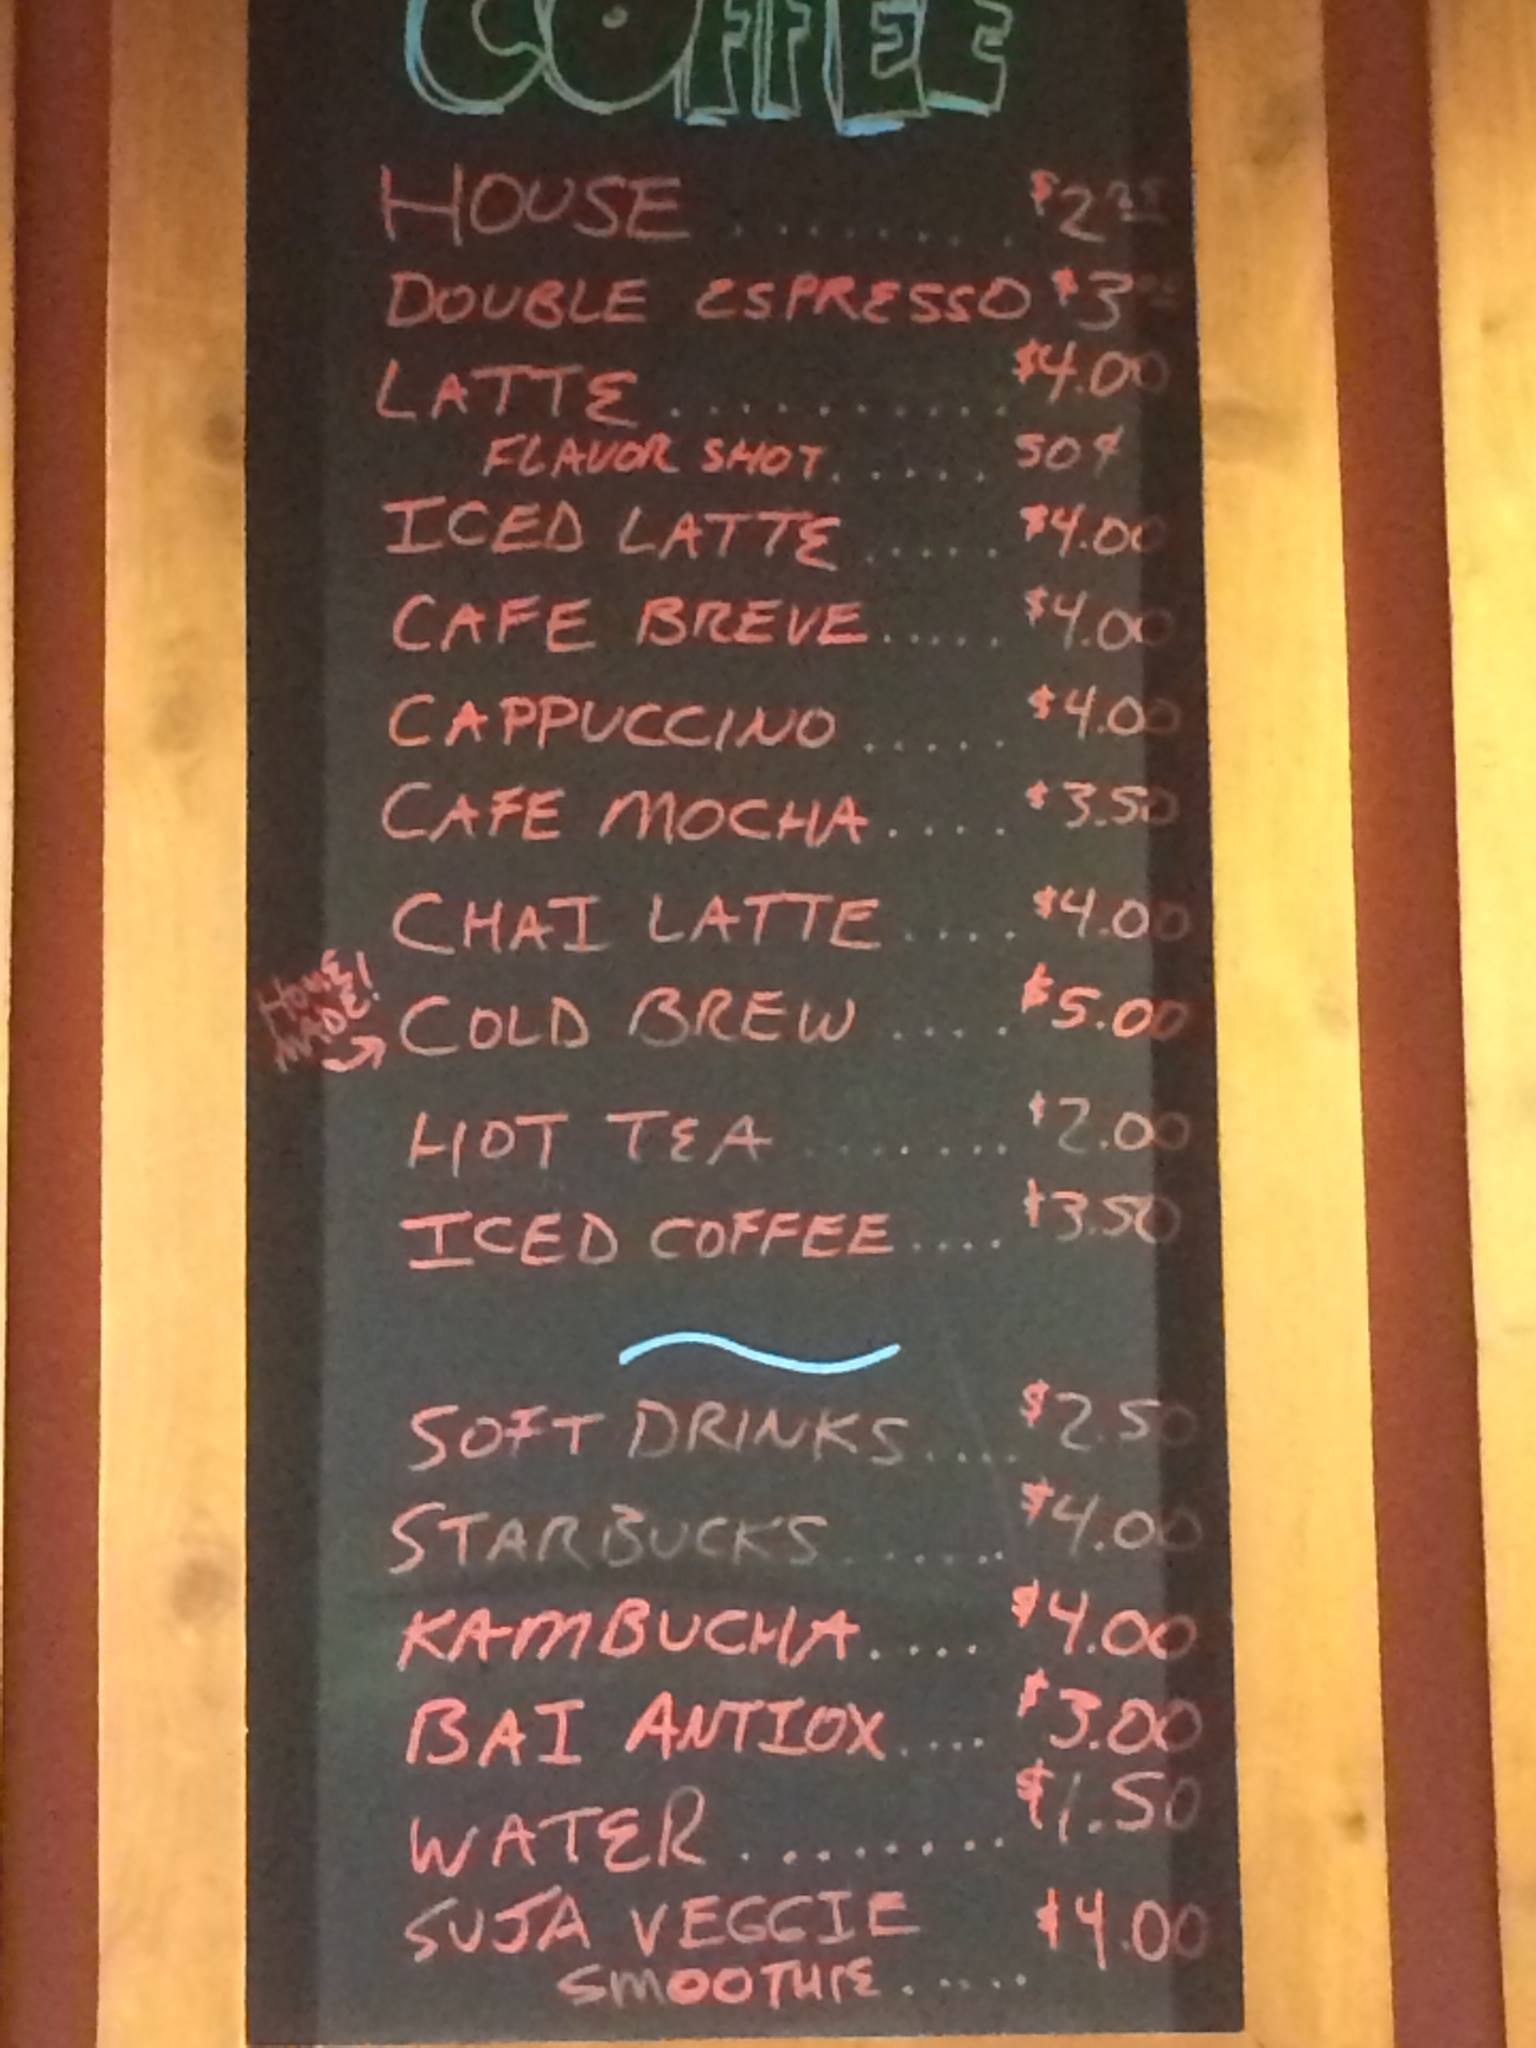 COFFEE
HOUSE ......... $2.25
DOUBLE ESPRESSO $3.00
LATTE ........... $4.00
FLAVOR SHOT ...... 50¢
ICED LATTE ..... $4.00
CAFE BREVE ..... $4.00
CAPPUCCINO ..... $4.00
CAFE MOCHA .... $3.50
CHAI LATTE .... $4.00
HOME MADE! → COLD BREW .... $5.00
HOT TEA ........ $2.00
ICED COFFEE .... $3.50
SOFT DRINKS .... $2.50
STARBUCKS ...... $4.00
KAMBUCHA .... $4.00
BAI ANTIOX .... $3.00
WATER ........ $1.50
SUJA VEGGIE $4.00
SMOOTHIE .....